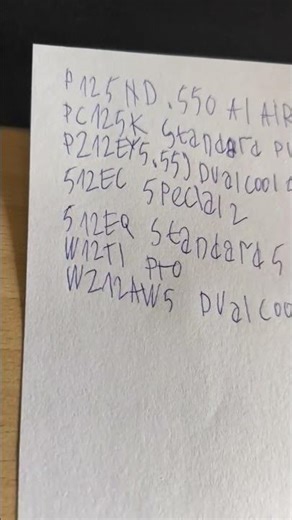 P125ND .550 AI AIR
PC125K Standard PL
PZ12EY5.55) Dualcool
512EC Special 2
512EQ Standard 5
W12TI Pro
WZ12AW5 Dualcoo